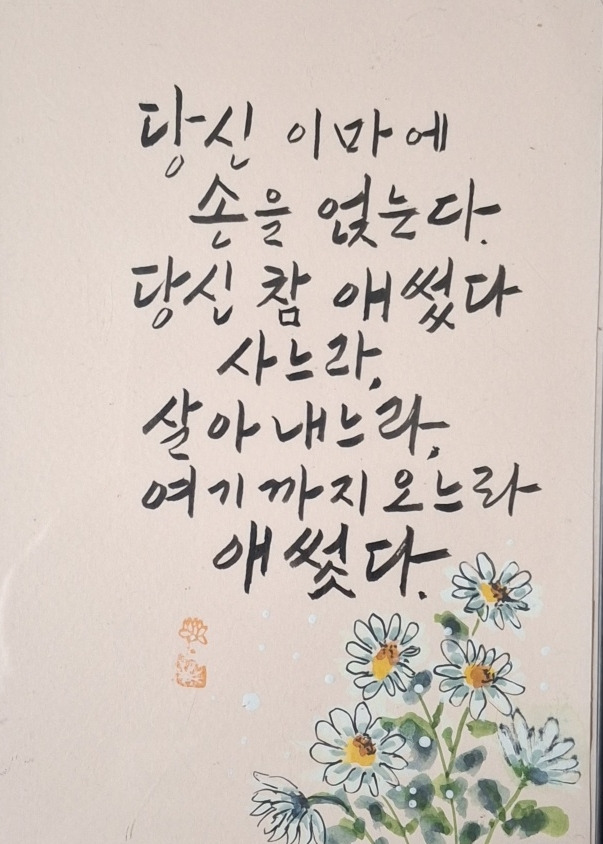 당신 이마에
손을 얹는다.
당신 참 애썼다
사느라,
살아내느라,
여기까지 오느라
애썼다.